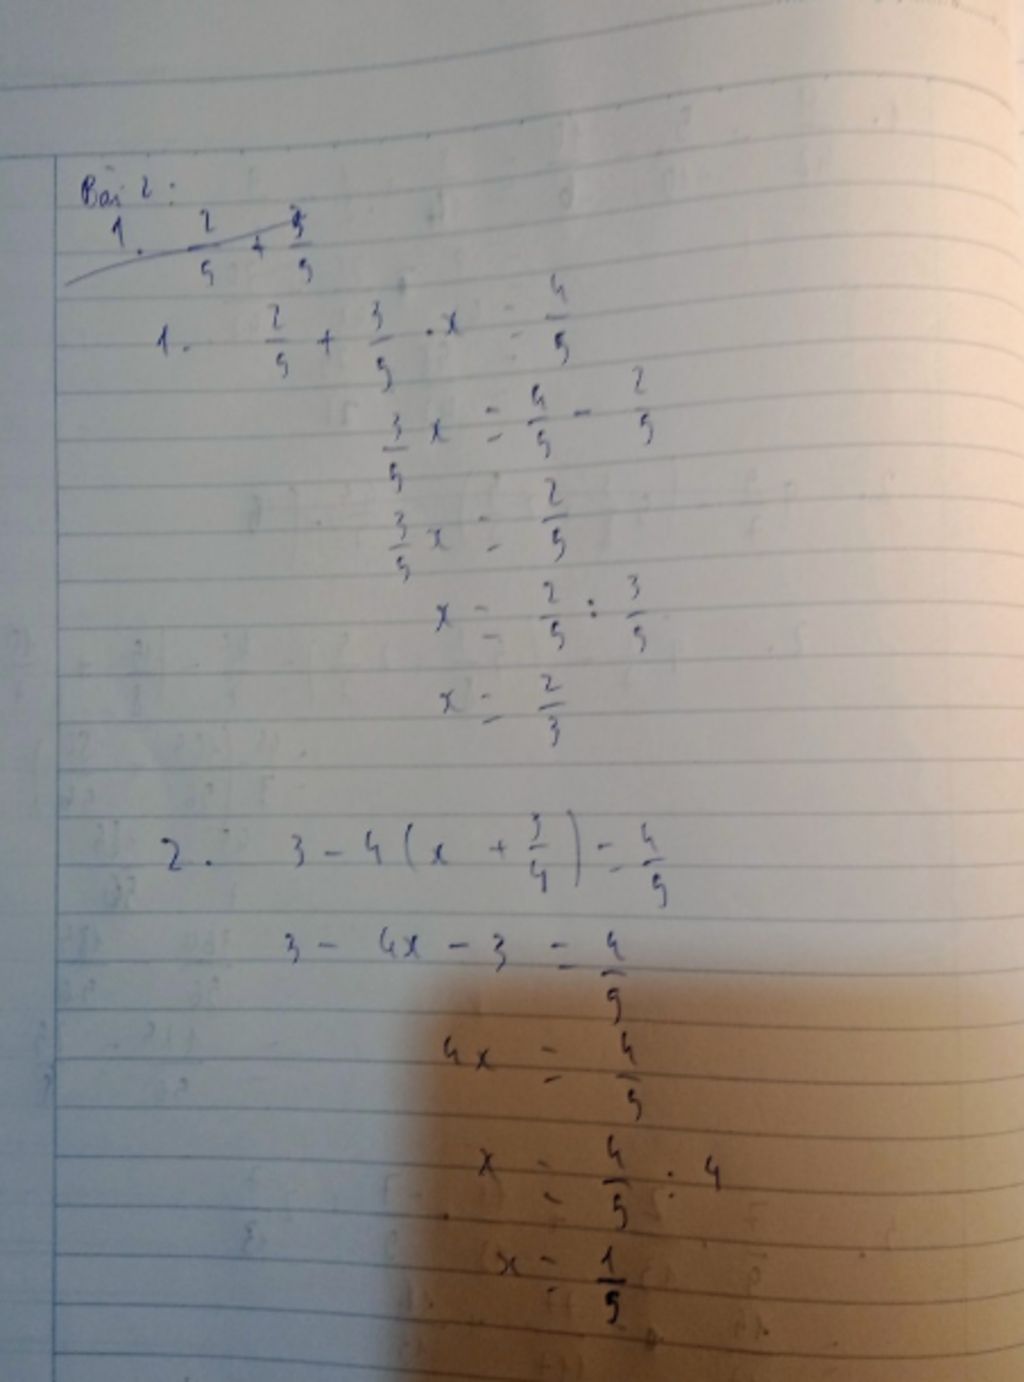 Bài 2:
1. 2/5 + 3/5
1. 2/5 + 3/5 . x = 4/5
3/5 x = 4/5 - 2/5
3/5 x = 2/5
x = 2/5 : 3/5
x = 2/3
2. 3 - 4(x + 3/4) = 4/5
3 - 4x - 3 = 4/5
4x = 4/5
x = 4/5 : 4
x = 1/5